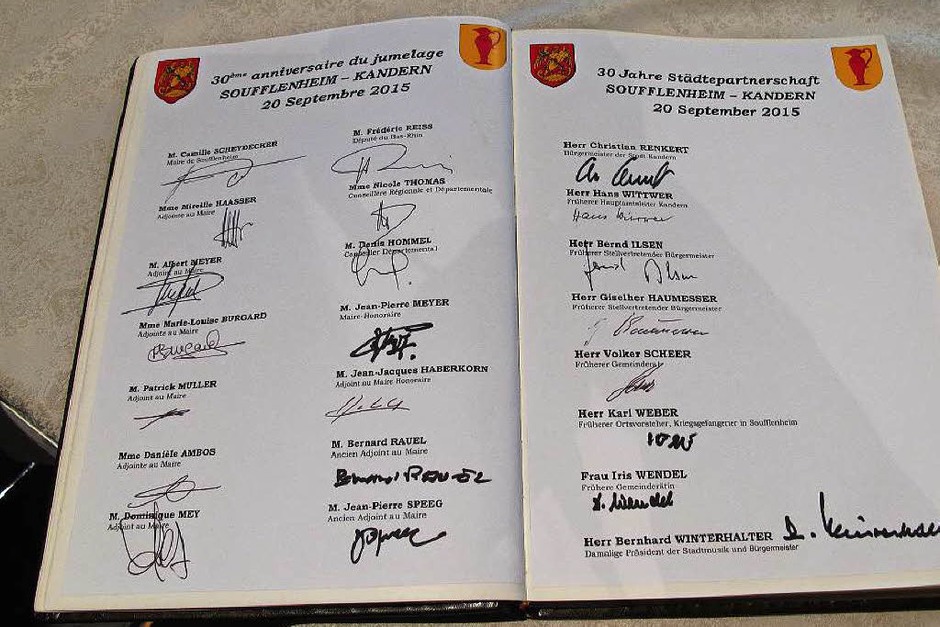 30ème anniversaire du jumelage
SOUFFLENHEIM – KANDERN
20 Septembre 2015
M. Camille SCHEYDECKER
Maire de Soufflenheim
Mme Mireille HAASSER
Adjointe au Maire
M. Albert MEYER
Adjoint au Maire
Mme Marie-Louise BURGARD
Adjointe au Maire
Burgard
M. Patrick MULLER
Adjoint au Maire
Mme Danièle AMBOS
Adjointe au Maire
M. Dominique MEY
Adjoint au Maire
M. Frédéric REISS
Député du Bas-Rhin
Mme Nicole THOMAS
Conseillère Régionale et Départementale
M. Denis HOMMEL
Conseiller Départemental
M. Jean-Pierre MEYER
Maire-Honoraire
M. Jean-Jacques HABERKORN
Adjoint au Maire Honoraire
M. Bernard RAUEL
Ancien Adjoint au Maire
M. Jean-Pierre SPEEG
Ancien Adjoint au Maire
30 Jahre Städtepartnerschaft
SOUFFLENHEIM – KANDERN
20 September 2015
Herr Christian RENKERT
Bürgermeister der Stadt Kandern
Herr Hans WITTWER
Früherer Hauptamtsleiter Kandern
Hans Wittwer
Herr Bernd ILSEN
Früherer Stellvertretender Bürgermeister
Bernd Ilsen
Herr Giselher HAUMESSER
Früherer Stellvertretender Bürgermeister
Herr Volker SCHEER
Früherer Gemeinderat
Herr Karl WEBER
Früherer Ortsvorsteher, Kriegsgefangener in Soufflenheim
Frau Iris WENDEL
Frühere Gemeinderätin
I. Wendel
Herr Bernhard WINTERHALTER
Damalige Präsident der Stadtmusik und Bürgermeister